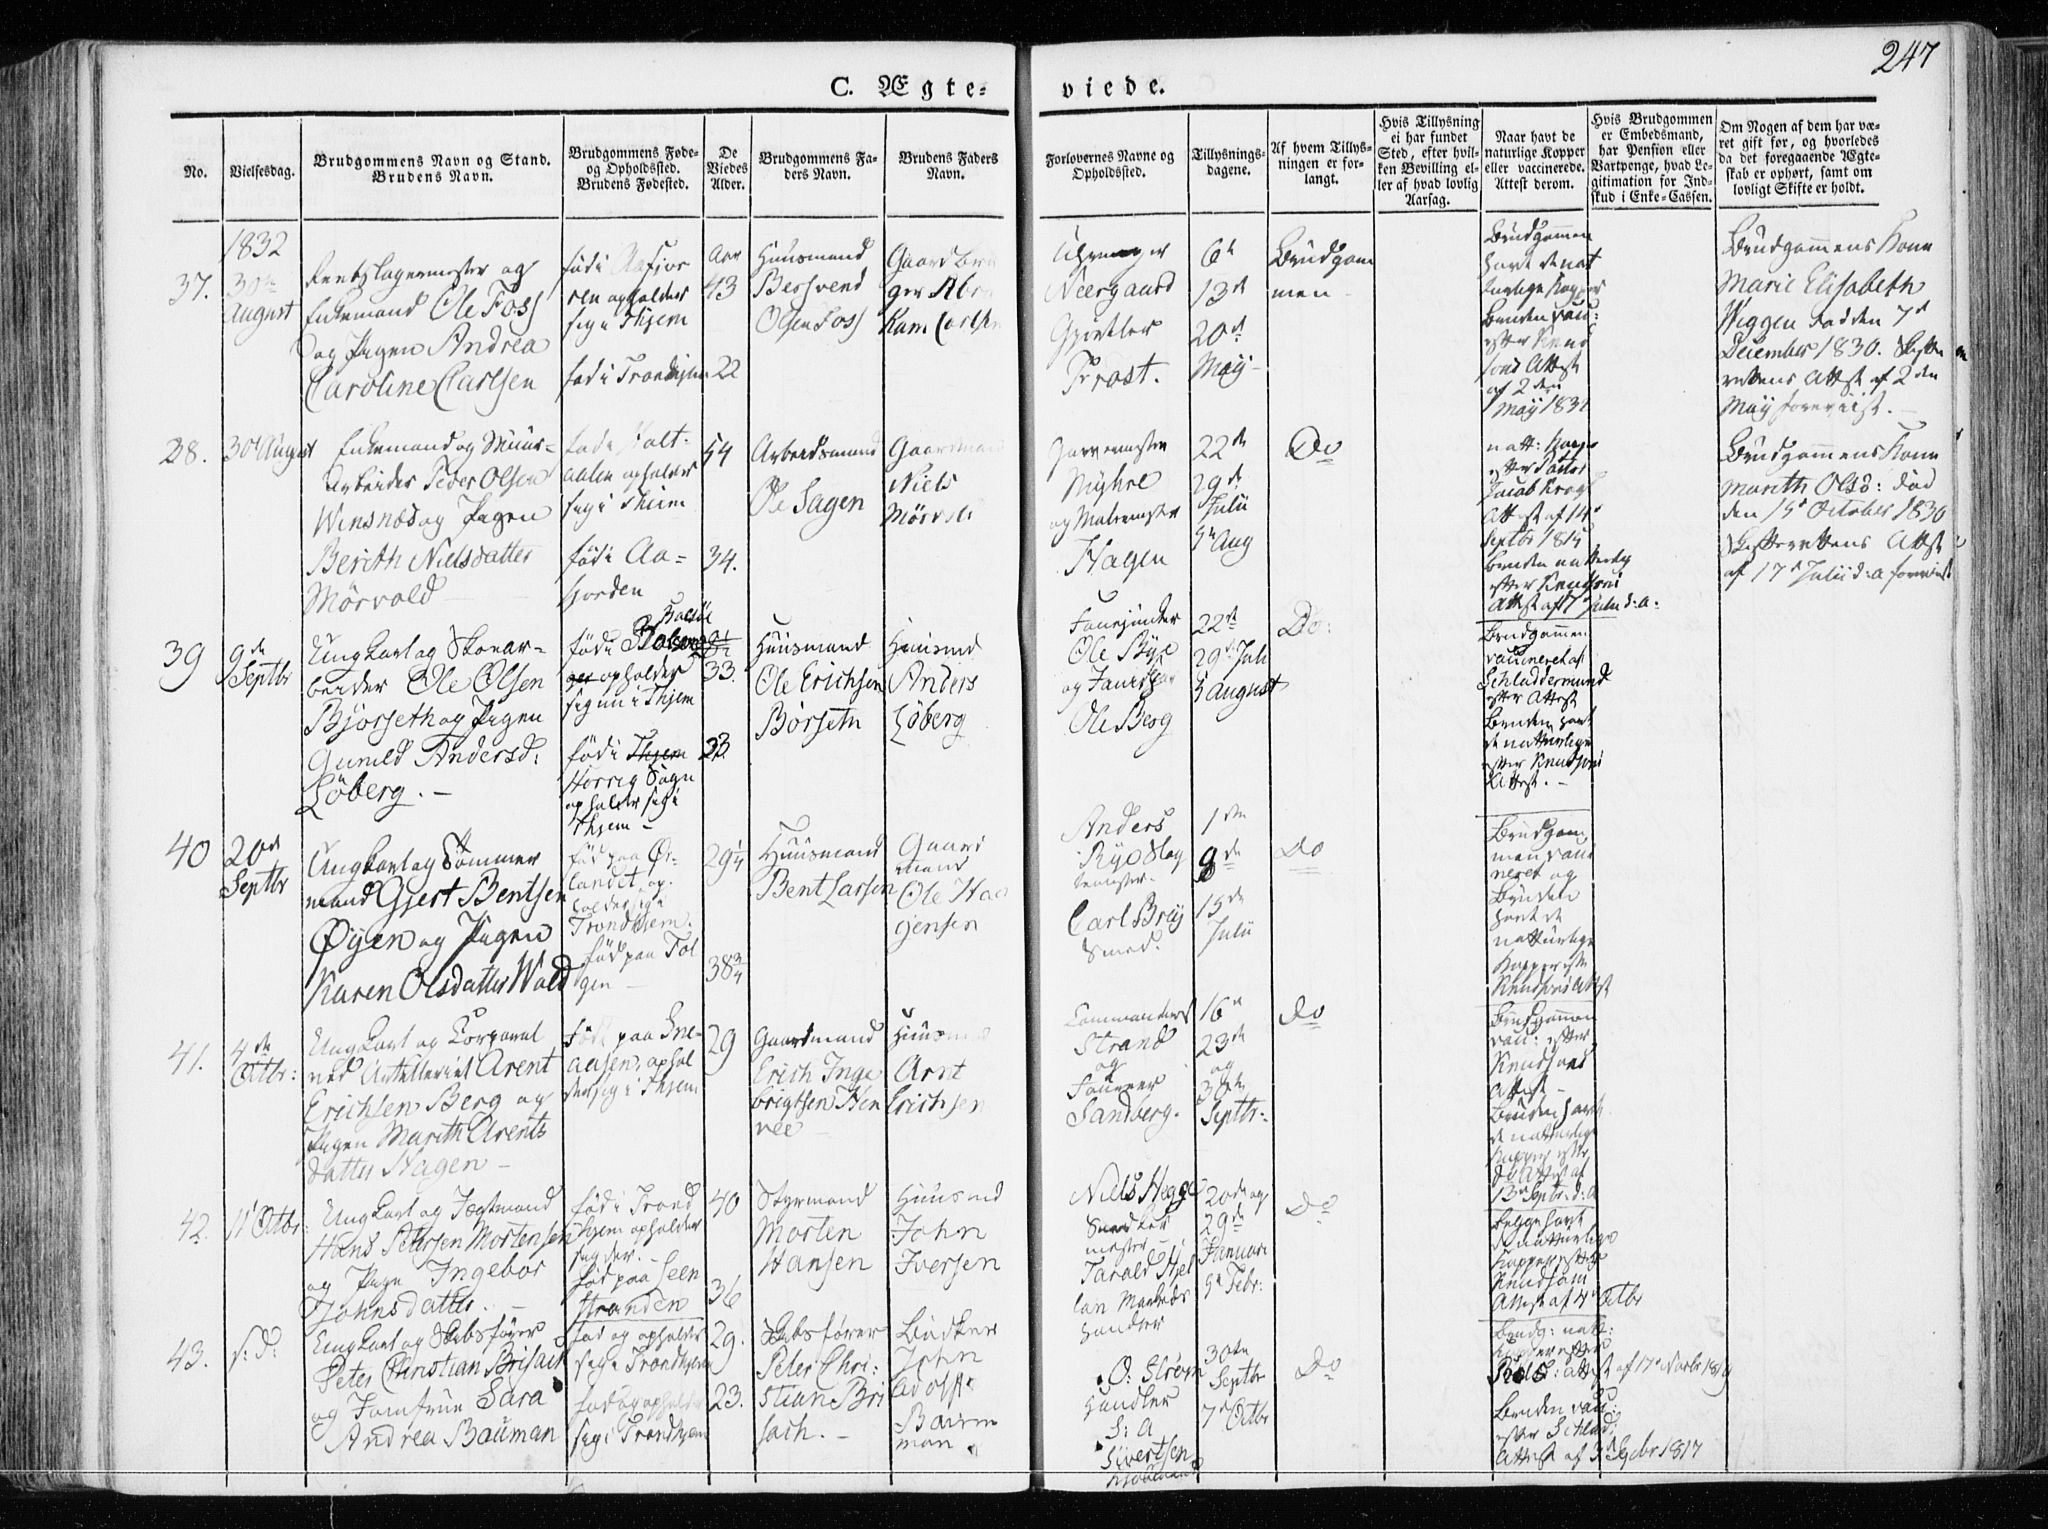 247
C. Ægte- viede.
No.
Vielsesdag.
Brudgommens Navn og Stand.
Brudens Navn.
Brudgommens Føde-
og Opholdssted.
Brudens Fødested.
De
Viedes
Alder.
Brudgommens Fa-
ders Navn.
Brudens Faders
Navn.
Forlovernes Navne og
Opholdssted.
Tillysnings-
dagene.
Af hvem Tillys-
ningen er for-
langt.
Hvis Tillysning
ei har fundet
Sted, efter hvil-
ken Bevilling el-
ler af hvad lovlig
Aarsag.
Naar havt de
naturlige Kopper
eller vaccinerede.
Attest derom.
Hvis Brudgommen
er Embedsmand,
har Pension eller
Vartpenge, hvad Le-
gitimation for Ind-
skud i Enke-Cassen.
Om Nogen af dem har væ-
ret gift før, og hvorledes
da det foregaaende Ægte-
skab er ophørt, samt om
lovligt Skifte er holdt.
1832
37.
30te
August
og
Enkemand Ole Foss
og Pigen Andrea
Caroline Carlsen
opholder
sig i Thjem
fød i Trondhjem
Aar
43
22
Huusmand
Bersvend
Olsen Foss
Gaardbru
ger Abra
ham Carlsen
Neergaard
Gjørtler
Frost.
6te
13de
20de
May
Brudgom
men
Brudgommen
havt de nat
turlige Kopper
Bruden vac:
efter Knud
sons Attest
af 2den
May 1832
Brudgommens Kone
Marie Elisabeth
Wiggen død den 7de
December 1830. Skifte
rettens Attest af 2den
May foreviist.
28.
30te August
Enkemand og Muur-
arbeider Peder Olsen
Winsnes og Pigen
Berith Nielsdatter
Mørvold
fød i Holt-
aalen opholder
sig i Thjem
fød i Aa-
fjorden
54
34.
Arbeidsmand
Ole Sagen
Gaardmand
Niels
Mørvold
Garvermester
Myhre
og Malermester
Hagen
22de
29de
Julii
5te Aug
Do
natt: Kopper
efter Pastor
Jacob Krogh
Attest af 14de
Septbr 1815
Bruden naturlig
efter Knudsons
Attest af 7 Julii d: a:
Brudgommens Kone
Marith Olsd: død
den 15de October 1830
Skifterettens Attest
af 17de Julii d: a foreviist
39
9de
Septbr
Ungkarl og Skoear-
beider Ole Olsen
Bjørseth og Pigen
Gunild Andersd:
Løberg.
fød i
opholder
sig nu i Thjem
fød i Thjem
Horrig Sogn
opholder sig i
Thjem
33.
33
Huusmand
Ole Erichsen
Børseth
Huusmd
Anders
Løberg
Ole Bye
og
Ole Berg
22de
29de Juli
5 August
Do:
Brudgommen
vaccineret af
Schladdermund
efter Attest
Bruden havt
de natturlige
efter Knudsons
Attest.
40
20de
Septbr
Ungkarl og Tømmer
mand Gjert Bentsen
Øyen og Pigen
Karen Olsdatter Wold
fød paa Ør-
landet, op-
holder sig i
Trondhjem.
fød paa Tol
gen
29 1/4
38 3/4
Huusmand
Bent Larsen
Gaard
mand
Ole Haa
gensen
Anders
Rye Slag
termester.
Carl Brey
Smed.
1ste
8de
15de
Julii
Do
Brudgom
men vacci
neret og
Bruden
havt de
natturlige
Kopper efter
Knudsons Attest
41.
4de
Octbr:
Ungkarl og Corporal
ved Artilleriet Arent
Erichsen Berg og
Pigen Marith Arents
datter Hagen
Født paa Sne-
aasen, ophol
der sig i Thjem
29
Gaardmand
Erich Inge
brigtsen
Huusmd
Arnt
Erichsen
Commandeur
Strand
og
Sandberg.
16de
23de
og
30te
Septbr:
Do
Brudgommen
vac: efter
Knudsons
Attest
Bruden havt
de naturlige
Kopper efter
do Attest af
13de Septbr: d: a
42.
11te Octbr:
Ungkarl og Jægtmand
Hans Petersen Mortensen
og Pige Ingebor
Johnsdatter.
fød i Trond
hjem opholder
sig der.
fød paa Leen
stranden
40
36
Styrmand
Morten
Hansen
Huusmd
John
Iversen
Niels Hegge
Snedker
mester
Tarald
Handler
20de og
29de
Januari
5te Febr:
Do
Begge havt
de naturlige
Kopper efter
Knudsons
Attest af 4de Octbr
43.
s: d:
Ungkarl og Skibsfører
Peter Christian Brisach
og Jomfrue Sara
Andrea Bauman
fød og opholder
sig i Trondhjem
fød og opholder
sig i Trondhjem
29.
23.
Skibsfører
Peter Chri:
stian Bri
sach.
Bødker
John
Adolph
Baum
man.
O: Strøm
Handler
S: A
Sivertsen
30te
Septbr
7de Octbr
Do
Brudg: natt:
Kopper efter
attest af 17de Novbr 1819
Bruden vac:
efter Schlad:
Attest af 3de Septbr 1817